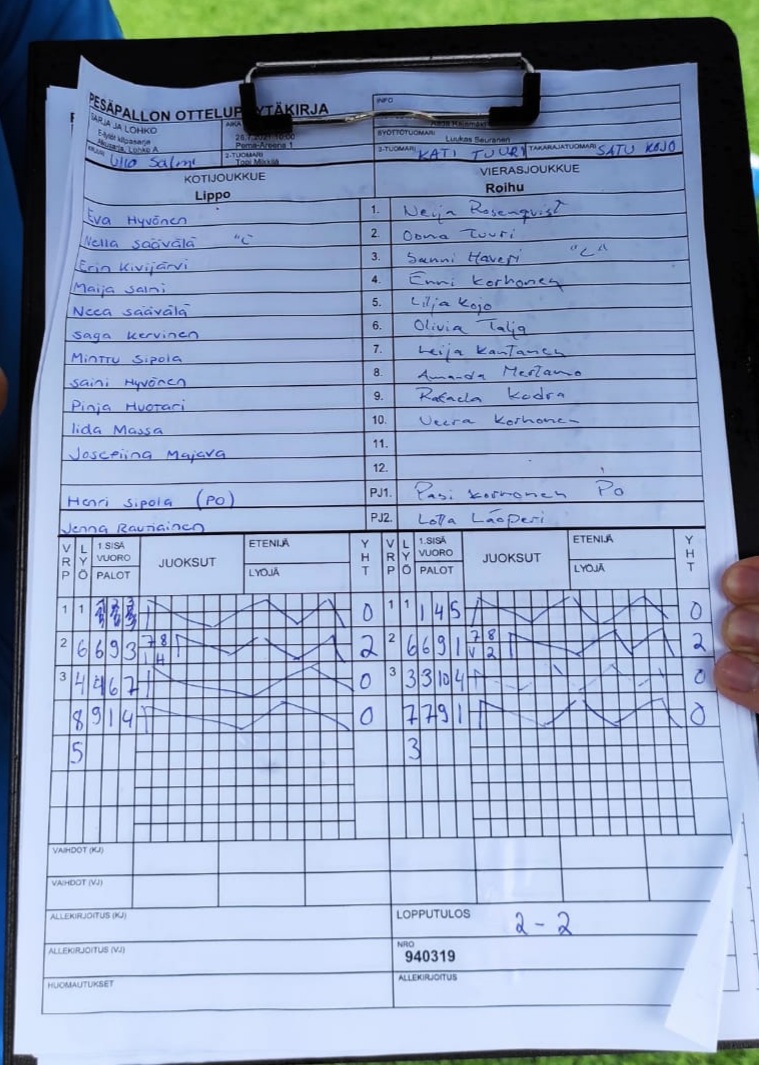 PESÄPALLON OTTELUPÖYTÄKIRJA
INFO
SARJA JA LOHKO
AIKA
E-tytöt kilpasarja
Alkusarja, Lohko A
SYÖTTÖTUOMARI
Luukas Seuranen
Ullo Salmi
2-TUOMARI
Topi Mikkilä
3-TUOMARI KATI TUURI TAKARAJATUOMARI SATU KOJO
KOTIJOUKKUE VIERASJOUKKUE
Lippo Roihu
Eva Hyvönen 1. Neija Rosenqvist
Nella Säävälä "C" 2. Oona Tuuri
Erin Kivijärvi 3. Sanni Haveri "C"
Maija Saini 4. Enni Korhonen
Neea Säävälä 5. Lilja Kojo
Saga Kervinen 6. Olivia Talja
Minttu Sipola 7. Leija Kantanen
Saini Hyvönen 8. Amanda Mertamo
Pinja Huotari 9. Rafaela Kodra
Iida Massa 10. Veera Korhonen
Josefiina Majava 11.
12.
Henri Sipola (PO) PJ1. Pasi Korhonen PO
Jenna Rautiainen PJ2. Lotta Lääperi
VRP LYÖ 1.SISÄ VUORO PALOT JUOKSUT ETENIJÄ LYÖJÄ YHT VRP LYÖ 1.SISÄ VUORO PALOT JUOKSUT ETENIJÄ LYÖJÄ YHT
1 1 0 1 1 1 4 5 0
2 6 6 9 3 7 8 2 2 6 6 9 1 7 8 2
3 4 4 6 7 0 3 3 3 10 4 0
8 9 1 4 0 7 7 9 1 0
5 3
VAIHDOT (KJ)
VAIHDOT (VJ)
ALLEKIRJOITUS (KJ) LOPPUTULOS 2 - 2
ALLEKIRJOITUS (VJ) NRO
940319
HUOMAUTUKSET ALLEKIRJOITUS